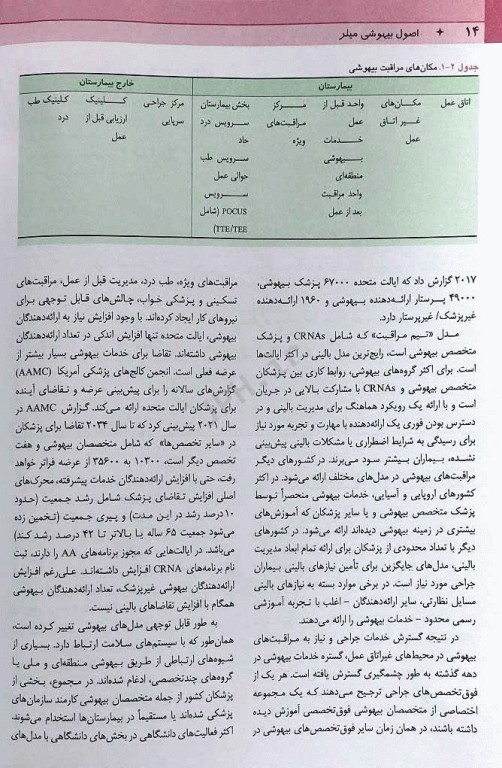 ۱۴ ✦ اصول بیهوشی میلر
جدول ۲-۱. مکان‌های مراقبت بیهوشی
بیمارستان
خارج بیمارستان
اتاق عمل
مکان‌های
غیر اتاق
عمل
واحد قبل از
عمل
خدمات
بیهوشی
منطقه‌ای
واحد مراقبت
بعد از عمل
مرکز
مراقبت‌های
ویژه
بخش بیمارستان
سرویس درد
حاد
سرویس طب
حوالی عمل
سرویس
POCUS (شامل
TTE/TEE)
مرکز جراحی
سرپایی
کلینیک
ارزیابی قبل از
عمل
کلینیک طب
درد
۲۰۱۷ گزارش داد که ایالت متحده ۶۷۰۰۰ پزشک بیهوشی،
۴۹۰۰۰ پرستار ارائه‌دهنده بیهوشی و ۱۹۶۰ ارائه‌دهنده
غیرپزشک/ غیرپرستار دارد.
مدل «تیم مراقبت» که شامل CRNAs و پزشک
متخصص بیهوشی است، رایج‌ترین مدل بالینی در اکثر ایالت‌ها
است. برای اکثر گروه‌های بیهوشی، روابط کاری بین پزشکان
متخصص بیهوشی و CRNAs با مشارکت بالایی در جریان
است و با ارائه یک رویکرد هماهنگ برای مدیریت بالینی و در
دسترس بودن فوری یک ارائه‌دهنده با مهارت و تجربه مورد نیاز
برای رسیدگی به شرایط اضطراری یا مشکلات بالینی پیش‌بینی
نشده، بیماران بیشتر سود می‌برند. در کشورهای دیگر
مراقبت‌های بیهوشی در مدل‌های مختلف ارائه می‌شود. در اکثر
کشورهای اروپایی و آسیایی، خدمات بیهوشی منحصراً توسط
پزشک متخصص بیهوشی و یا سایر پزشکان که آموزش‌های
بیشتری در زمینه بیهوشی دیده‌اند ارائه می‌شود. در کشورهای
دیگر با تعداد محدودی از پزشکان برای ارائه تمام ابعاد مدیریت
بالینی، مدل‌های جایگزین برای تأمین نیازهای بالینی بیماران
جراحی مورد نیاز است. در برخی موارد بسته به نیازهای بالینی
مسایل نظارتی، سایر ارائه‌دهندگان - اغلب با تجربه آموزشی
رسمی محدود - خدمات بیهوشی را ارائه می‌دهند.
در نتیجه گسترش خدمات جراحی و نیاز به مراقبت‌های
بیهوشی در محیط‌های غیراتاق عمل، گستره خدمات بیهوشی در
دهه گذشته به طور چشمگیری گسترش یافته است. هر یک از
فوق‌تخصص‌های جراحی ترجیح می‌دهند که یک مجموعه
اختصاصی از متخصصان بیهوشی فوق‌تخصصی آموزش دیده
داشته باشند، در همان زمان سایر فوق‌تخصص‌های بیهوشی در
مراقبت‌های ویژه، طب درد، مدیریت قبل از عمل، مراقبت‌های
تسکینی و پزشکی خواب، چالش‌های قابل توجهی برای
نیروهای کار ایجاد کرده‌اند. با وجود افزایش نیاز به ارائه‌دهندگان
بیهوشی، ایالت متحده تنها افزایش اندکی در تعداد ارائه‌دهندگان
بیهوشی داشته‌اند. تقاضا برای خدمات بیهوشی بسیار بیشتر از
عرضه فعلی است. انجمن کالج‌های پزشکی آمریکا (AAMC)
گزارش‌های سالانه را برای پیش‌بینی عرضه و تقاضای آینده
برای پزشکان ایالت متحده ارائه می‌کند. گزارش AAMC در
سال ۲۰۲۱ پیش‌بینی کرد که تا سال ۲۰۳۴ تقاضا برای پزشکان
در «سایر تخصص‌ها» که شامل متخصصان بیهوشی و هفت
تخصص دیگر است، ۱۰۳۰۰ به ۳۵۶۰۰ از عرضه فراتر خواهد
رفت، حتی با افزایش ارائه‌دهندگان خدمات پیشرفته، محرک‌های
اصلی افزایش تقاضای پزشک شامل رشد جمعیت (حدود
۱۰ درصد رشد در این مدت) و پیری جمعیت (تخمین زده
می‌شود جمعیت ۶۵ ساله یا بالاتر تا ۴۲ درصد رشد کند)
می‌باشد. در ایالت‌هایی که مجوز برنامه‌های AA را دارند، ثبت
نام برنامه‌های CRNA افزایش داشته‌اند. علی‌رغم افزایش
ارائه‌دهندگان بیهوشی غیرپزشک، تعداد ارائه‌دهندگان بیهوشی
همگام با افزایش تقاضاهای بالینی نیست.
به طور قابل توجهی مدل‌های بیهوشی تغییر کرده است،
همان‌طور که با سیستم‌های سلامت ارتباط دارد. بسیاری از
شیوه‌های ارتباطی از طریق بیهوشی منطقه‌ای و ملی یا
گروه‌های چندتخصصی، ادغام شده‌اند. در مجموع، بخشی از
پزشکان کشور از جمله متخصصان بیهوشی کارمند سازمان‌های
پزشکی شده‌اند یا مستقیماً در بیمارستان‌ها استخدام می‌شوند.
اکثر فعالیت‌های دانشگاهی در بخش‌های دانشگاهی با مدل‌های